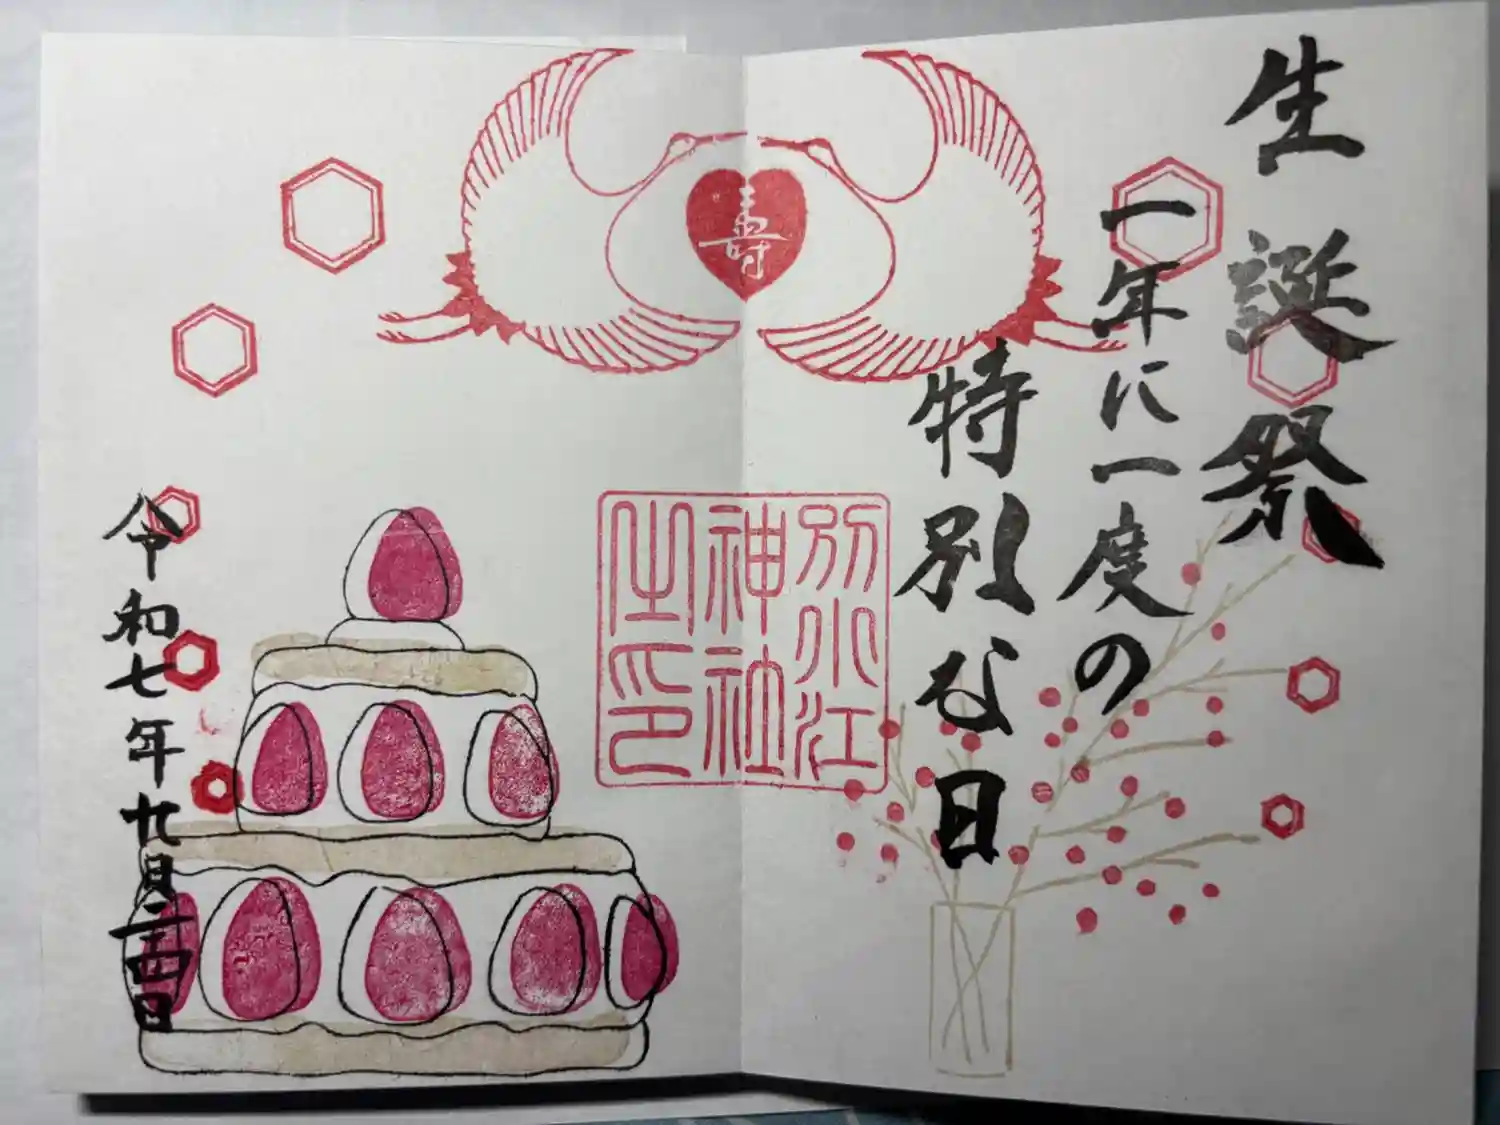 生誕祭
一年に一度の
特別な日
壽
別小江
神社
之印
令和七年九月二十四日